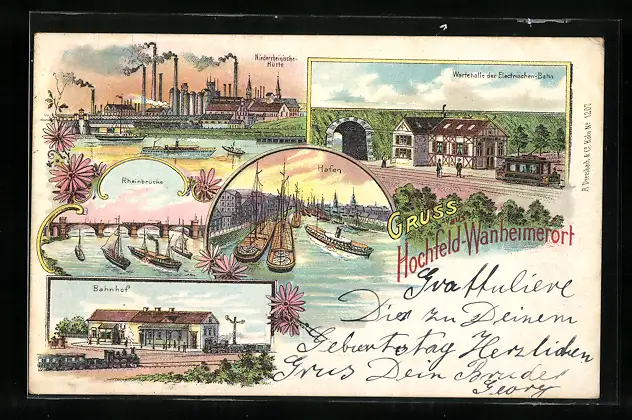 Niederrheinische-
Hütte
Wartehalle der Electrischen-Bahn
Rheinbrücke
Hafen
Gruss
aus
Hochfeld-Wanheimerort
Bahnhof
Grattuliere
Dir zu Deinem
Geburtstag Herzlichen
Grus Dein Bruder
Georg